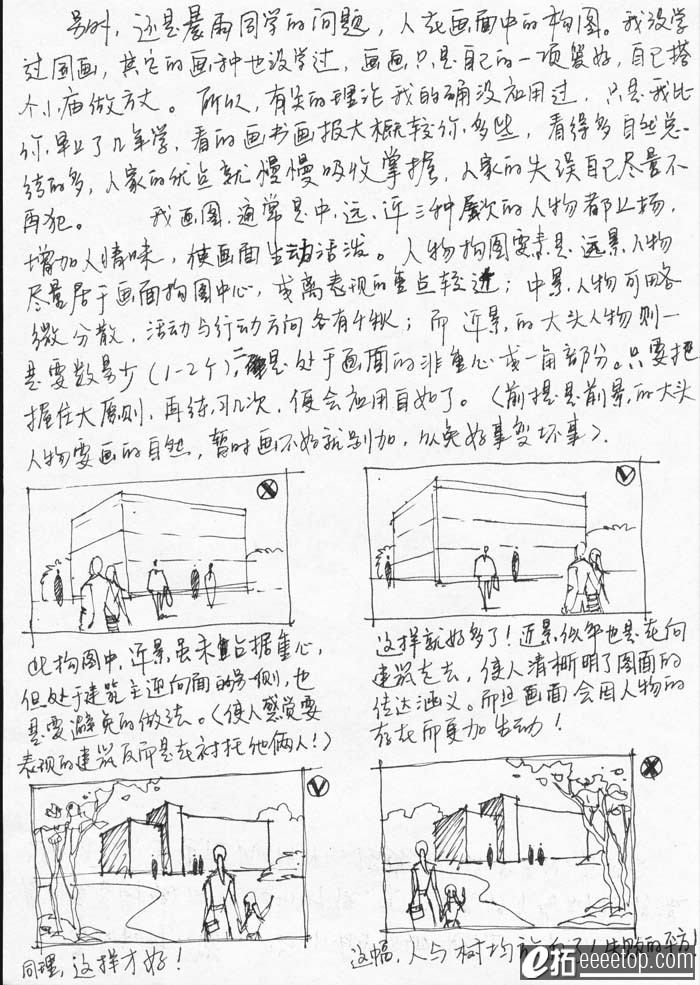 另外，还是暴雨同学的问题，人在画面中的构图。我没学
过国画，其它的画种也没学过，画画只是自己的一项爱好，自己搭
个小庙做方丈。所以，有关的理论我的确没应用过，只是我比
你早上了几年学，看的画书画报大概较你多些，看得多自然总
结的多，人家的优点就慢慢吸收掌握，人家的失误自己尽量不
再犯。 我画图，通常是中、远、近三种层次的人物都上场，
增加人情味，使画面生动活泼。人物构图要素是远景人物
尽量居于画面构图中心，或离表现的重点较近；中景人物可略
微分散，活动与行动方向各有千秋；而近景的大头人物则一
是要数量少（1-2个），二是处于画面的非重心或一角部分。只要把
握住大原则，再练习几次，便会应用自如了。（前提是前景的大头
人物要画的自然，暂时画不好就别加，以免好事变坏事）.
此构图中，近景虽未占据重心，
但处于建筑主迎向面的另侧，也
是要避免的做法。（使人感觉要
表现的建筑反而是在衬托他俩人！）
这样就好多了！近景似乎也是在向
建筑走去，使人清晰明了图面的
传达涵义。而且画面会因人物的
存在而更加生动！
同理，这样才好！
这幅，人与树均
e拓 eeeetop.com